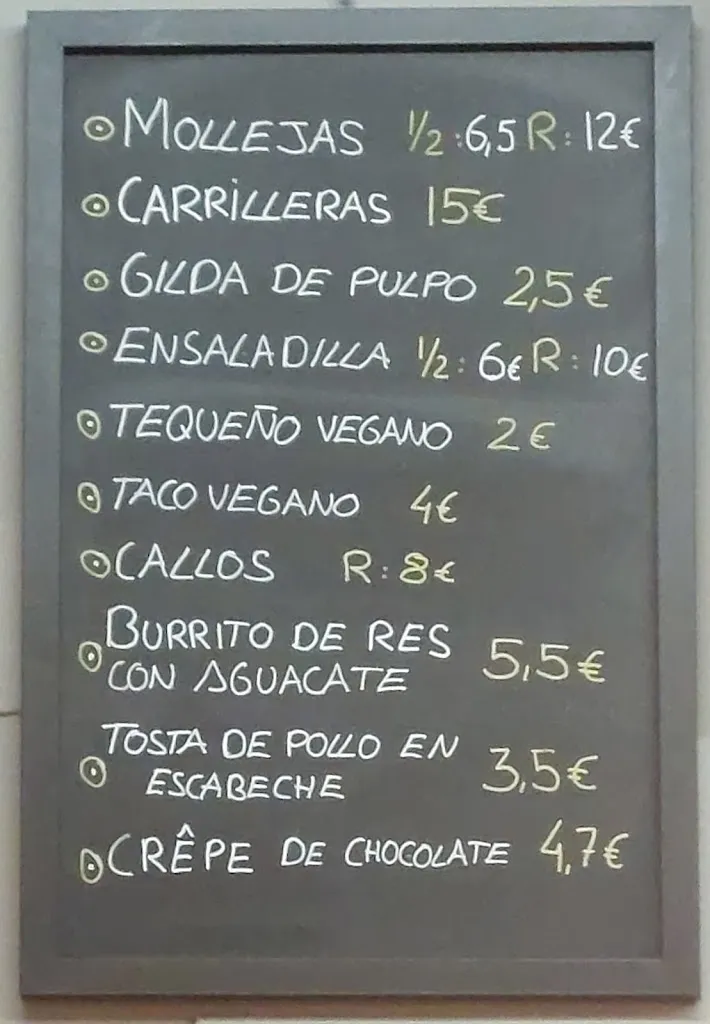 MOLLEJAS ½:6,5 R: 12€
CARRILLERAS 15€
GILDA DE PULPO 2,5€
ENSALADILLA ½: 6€ R: 10€
TEQUEÑO VEGANO 2€
TACO VEGANO 4€
CALLOS R: 8€
BURRITO DE RES
CON AGUACATE 5,5€
TOSTA DE POLLO EN
ESCABECHE 3,5€
CRÊPE DE CHOCOLATE 4,7€